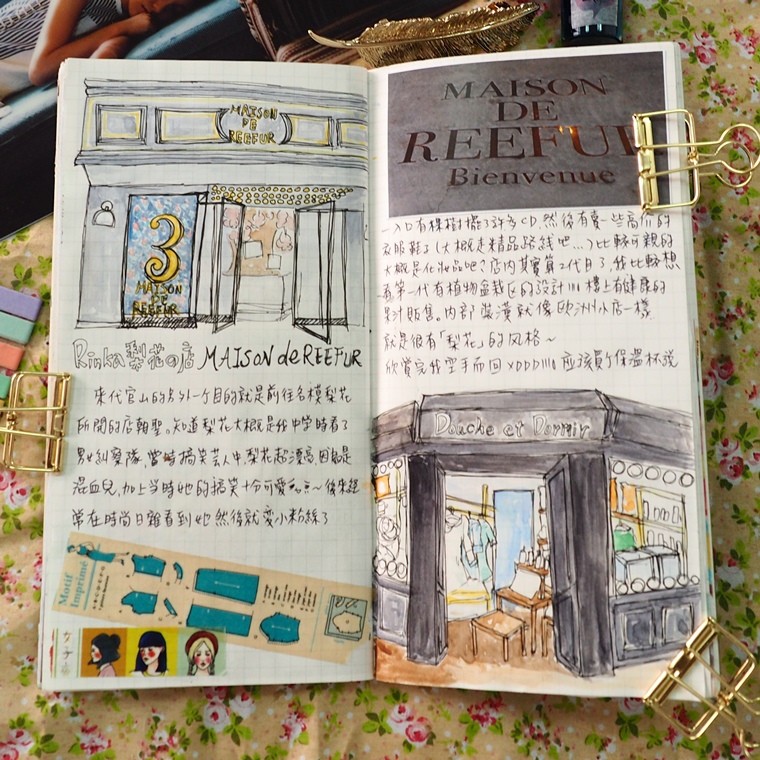 MAISON
DE
REEFUR
3
MAISON
DE
REEFUR
Rinka梨花の店 MAISON de REEFUR
來代官山的另外一個目的就是前往名模梨花
所開的店朝聖。知道梨花大概是我中學時看了
男女糾察隊,當時搞笑芸人中,梨花超漂亮,因她是
混血兒,加上當時她的搞笑十分可愛~後來經
常在時尚日雜看到她然後就變小粉絲了
Motif
Imprimé
MAISON
DE
REEFUR
Bienvenue
一入口有棵樹擺了許多CD,然後有賣一些高價的
衣服鞋子(大概走精品路線吧...)比較可親的
大概是化妝品吧?店內其實算2代目了,我比較想
看第一代有植物盆栽的設計 樓上有健康的
果汁販售。內部裝潢就像歐洲小店一樣
就是很有「梨花」的风格~
欣賞完我空手而回 XDDD 應該買个保溫杯說
Douche et Dormir